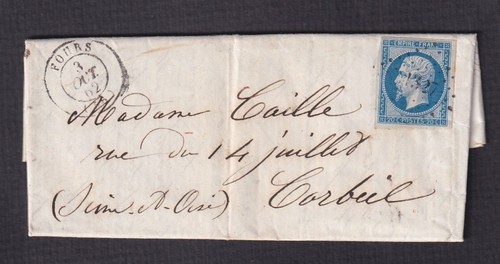 FOURS
3
OCT.
62
EMPIRE FRANC.
20 C. POSTES 20 C.
Madame Caille
rue du 14 juillet
Corbeil
(Seine-et-Oise)